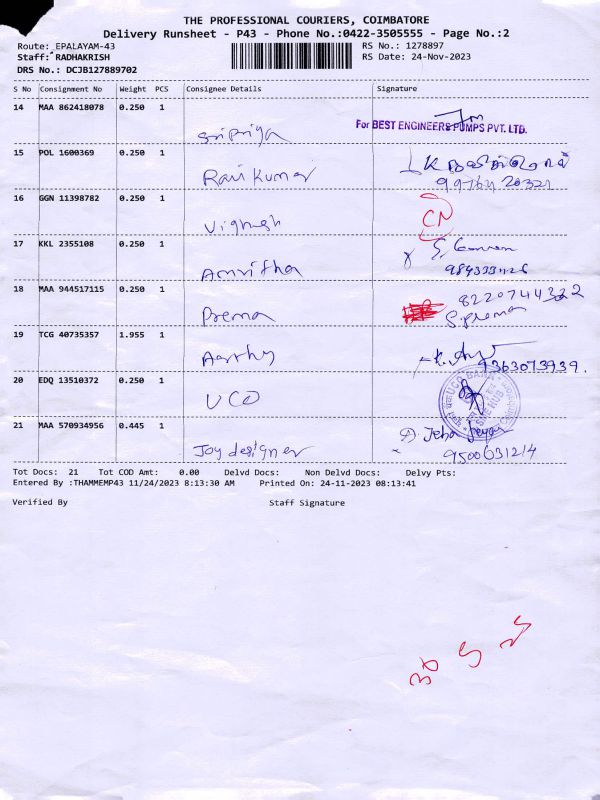 THE PROFESSIONAL COURIERS, COIMBATORE
Delivery Runsheet - P43 - Phone No.:0422-3505555 - Page No.:2
Route: EPALAYAM-43 RS No.: 1278897
Staff: RADHAKRISH RS Date: 24-Nov-2023
DRS No.: DCJB127889702
S No Consignment No Weight PCS Consignee Details Signature
14 MAA 862418078 0.250 1
Sripriya For BEST ENGINEERS PUMPS PVT. LTD.
15 POL 1600369 0.250 1
Ravi Kumar
16 GGN 11398782 0.250 1
Vignesh CN
17 KKL 2355108 0.250 1
Amritha
18 MAA 944517115 0.250 1 8220744322
Prema S.prema
19 TCG 40735357 1.955 1
Aarthy 9363073939.
20 EDQ 13510372 0.250 1
UCO UCO BANK
21 MAA 570934956 0.445 1
Joy designer 9500631214
Tot Docs: 21 Tot COD Amt: 0.00 Delvd Docs: Non Delvd Docs: Delvy Pts:
Entered By :THAMMEMP43 11/24/2023 8:13:30 AM Printed On: 24-11-2023 08:13:41
Verified By Staff Signature